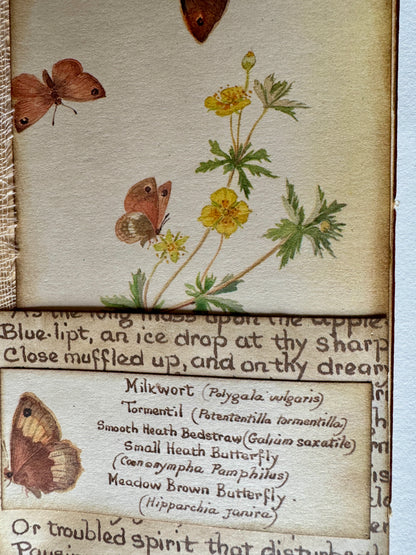 As the long moss upon the apple
Blue-lipt, an ice drop at thy sharp
Close muffled up, and on thy drear
Milkwort (Polygala vulgaris)
Tormentil (Potententilla tormentilla)
Smooth Heath Bedstraw (Galium saxatile)
Small Heath Butterfly
(Cœnonympha Pamphilus)
Meadow Brown Butterfly.
(Hipparchia janira)
Or troubled spirit that disturb